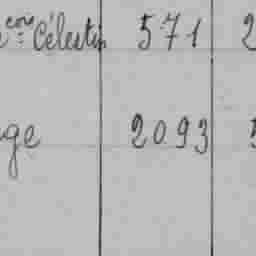 Célestin 571 2
ge 2093